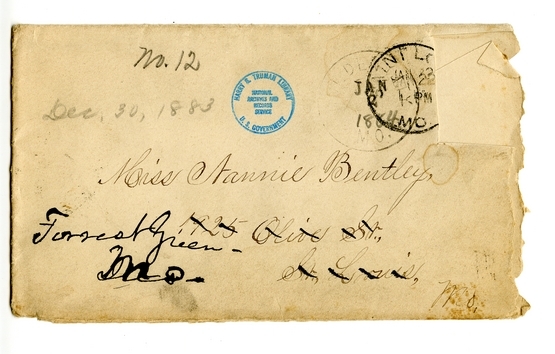 No. 12
Dec. 30, 1883
HARRY S. TRUMAN LIBRARY
NATIONAL
ARCHIVES AND
RECORDS
SERVICE
U.S. GOVERNMENT
JAN
2
1884
MO.
SAINT LO
JAN
PM
MO.
Miss Nannie Bentley,
1925 Olive St.,
Forrest Green
Mo.
St. Louis,
Mo.